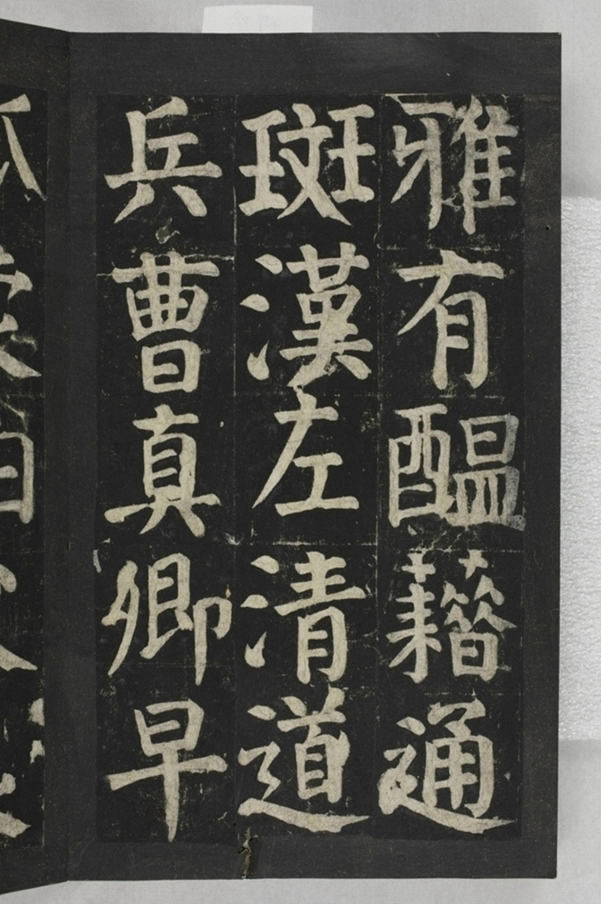 雅有醖藉通
班漢左清道
兵曹真卿早